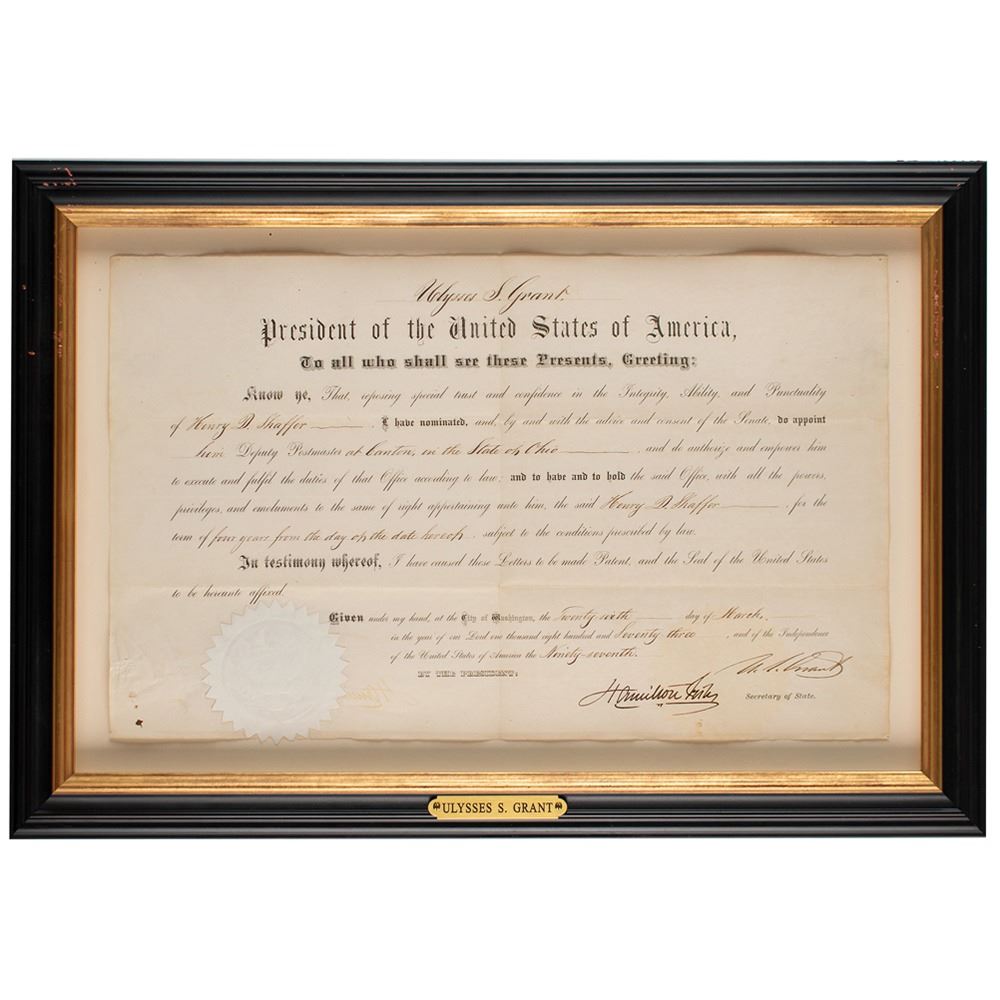 Ulysses S. Grant.
President of the United States of America,
To all who shall see these Presents, Greeting:
Know ye, That, reposing special trust and confidence in the Integrity, Ability, and Punctuality
of Henry D. Shaffer, I have nominated, and, by and with the advice and consent of the Senate, do appoint
him Deputy Postmaster at Canton, in the State of Ohio, and do authorize and empower him
to execute and fulfil the duties of that Office according to law; and to have and to hold the said Office, with all the powers,
privileges, and emoluments to the same of right appertaining unto him, the said Henry D. Shaffer, for the
term of four years from the day of the date hereof, subject to the conditions prescribed by law.
In testimony whereof, I have caused these Letters to be made Patent, and the Seal of the United States
to be hereunto affixed.
Given under my hand, at the City of Washington, the Twenty sixth day of March,
in the year of our Lord one thousand eight hundred and Seventy three, and of the Independence
of the United States of America the Ninety-seventh.
BY THE PRESIDENT:
U. S. Grant
Hamilton Fish
Secretary of State.
ULYSSES S. GRANT